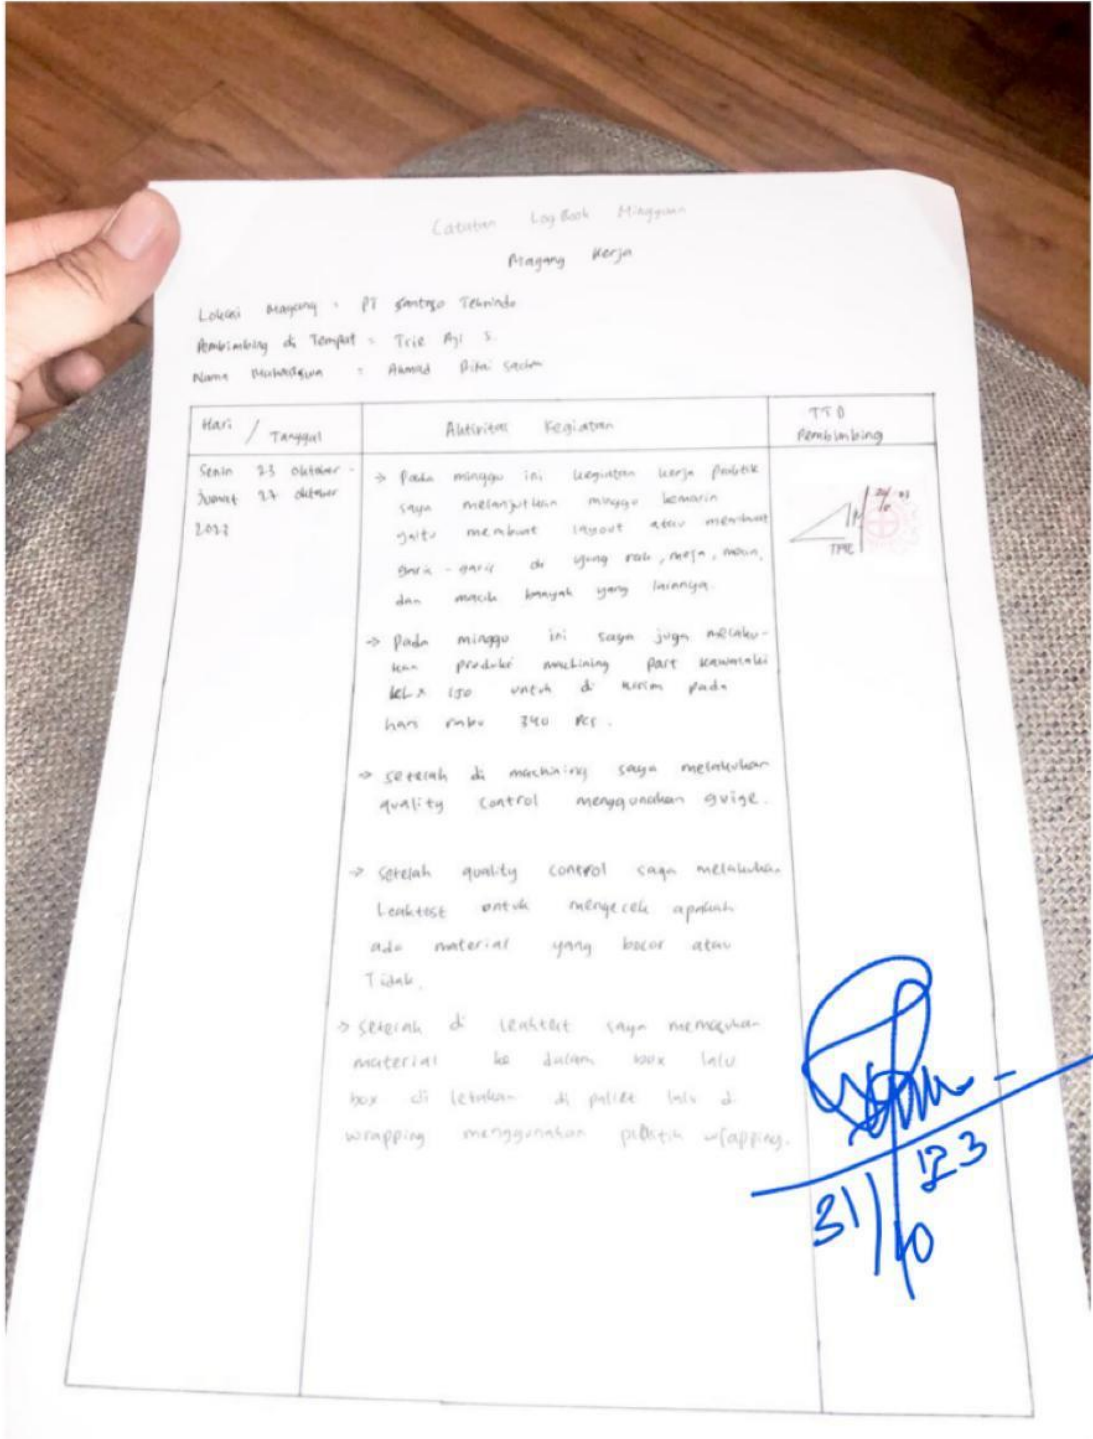 Catatan LogBook Mingguan
Magang Kerja
Lokasi Magang : PT Santoso Teknindo
Pembimbing di Tempat : Trie Aji S.
Nama Mahasiswa : Ahmad
Hari / Tanggal
Aktivitas Kegiatan
TTD
Pembimbing
Senin 23 Oktober -
Jumat 27 Oktober
2023
→ Pada minggu ini kegiatan kerja praktik
saya melanjutkan minggu kemarin
yaitu membuat layout atau membuat
garis - garis di rak, meja, mesin,
dan masih banyak yang lainnya.
→ Pada minggu ini saya juga melaku-
kan produksi machining part kawasaki
KLX 150 untuk di kirim pada
hari rabu 340 Pcs.
→ setelah di machining saya melakukan
quality control menggunakan guige.
→ setelah quality control saya melakukan
Leaktest untuk mengecek apakah
ada material yang bocor atau
Tidak.
→ setelah di leaktest saya memasukan
material ke dalam box lalu
box di letakan di pallet lalu di
wrapping menggunakan plastik wrapping.
TRIE
31/10 '23